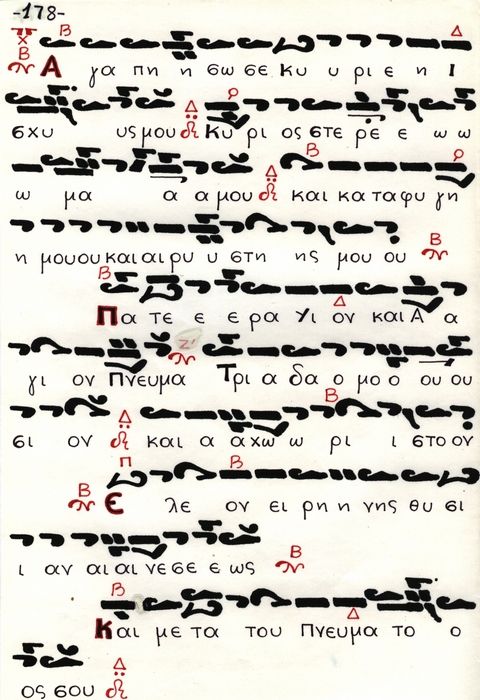 -178-
Α γα πη η σω σε Κυ υ ρι ε η Ι
σχυ υς μου Κυ ρι ος στε ρε ε ω ω
ω μα α α μου και κα τα φυ γη
η μου ου και αι ρυ υ στη ης μου ου
Πα τε ε ε ρα Υι ον και Α α
γι ον Πνευμα Τρι α δα ο μο ο ου ου
σι ον και α αχω ω ρι ι στο ον
Ε λε ον ει ρη η νης θυ σι
ι αν αι αι νε σε ε ως
Και με τα του Πνευμα το ο
ος σου